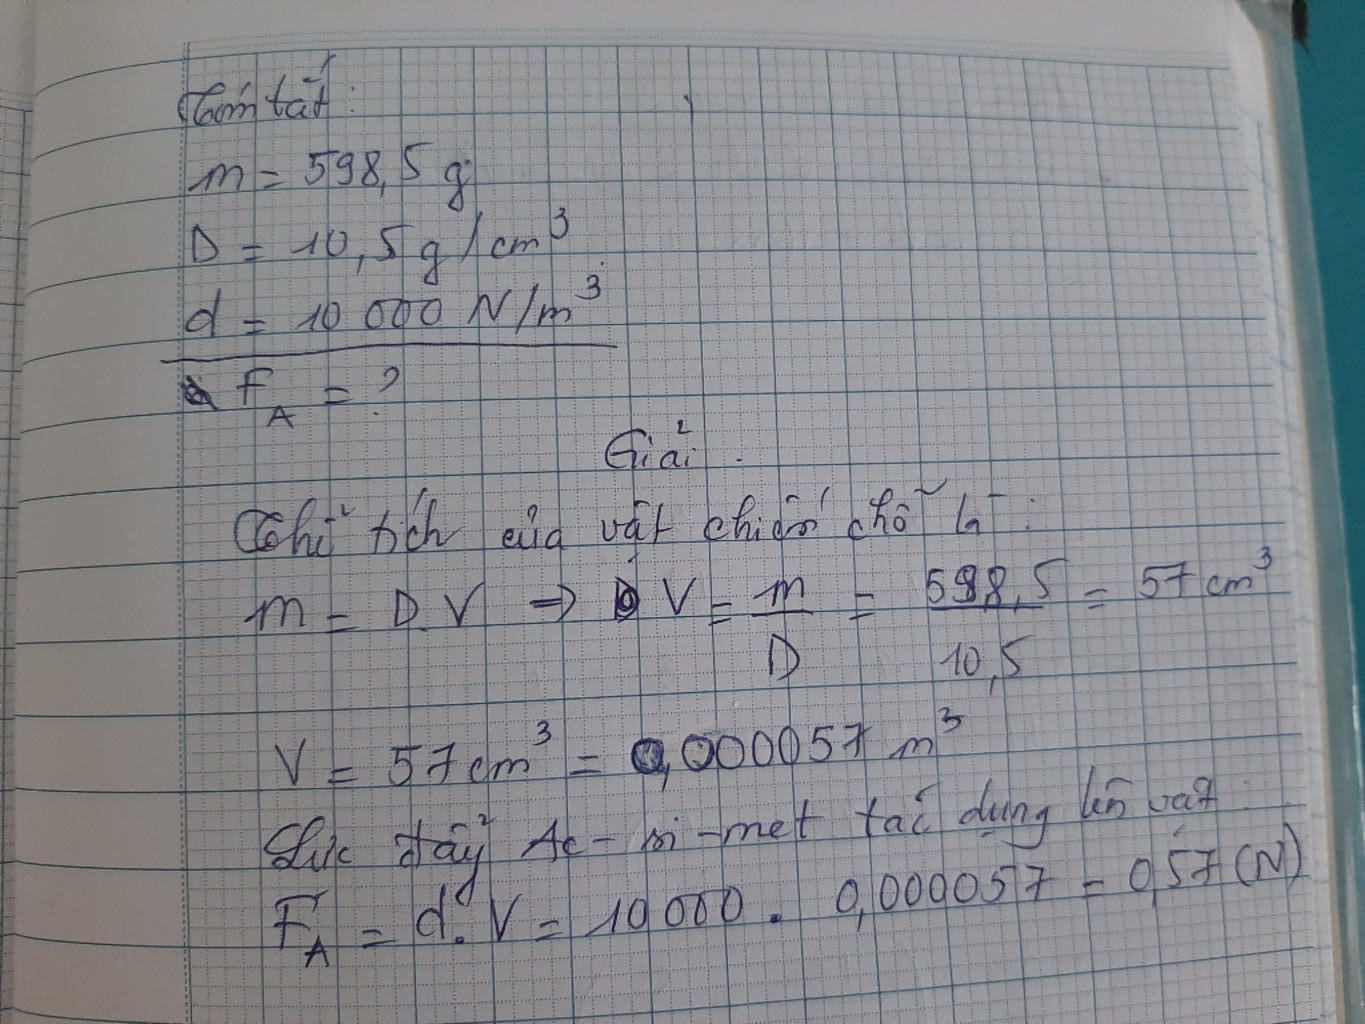 Tóm tắt:
m = 598,5 g
D = 10,5 g/cm³
d = 10 000 N/m³
F_A = ?
Giải.
Thể tích của vật chiếm chỗ là:
m = D.V => V = m/D = 598,5/10,5 = 57 cm³
V = 57 cm³ = 0,000057 m³
Lực đẩy Ac-si-met tác dụng lên vật:
F_A = d.V = 10 000 . 0,000057 = 0,57 (N)